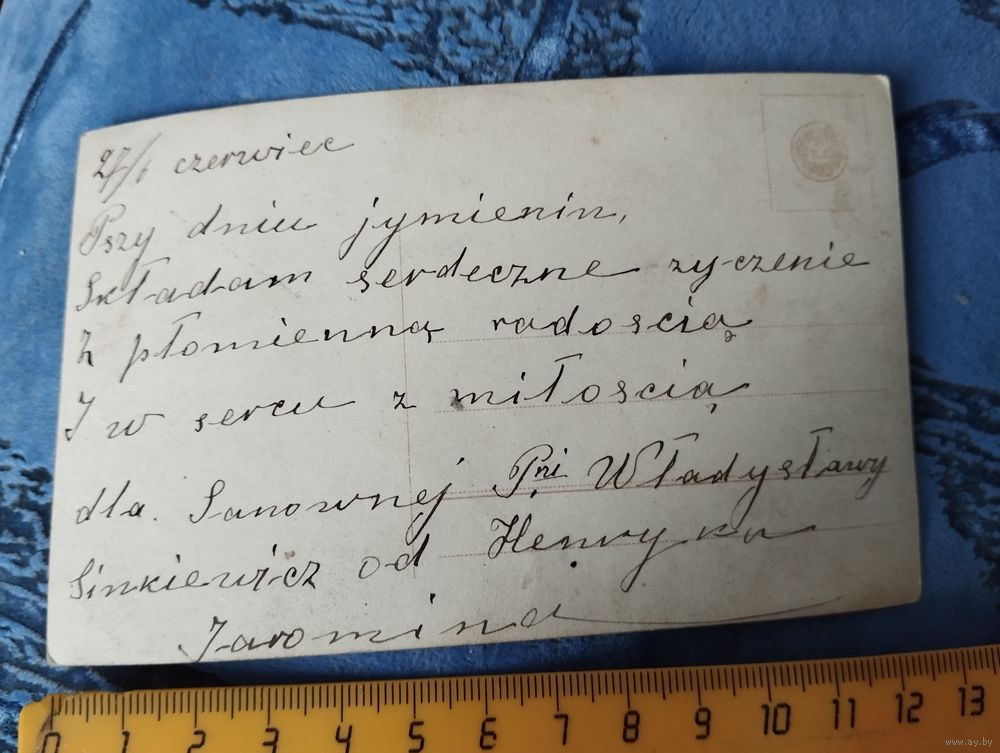 27/6 czerwiec
Pszy dniu jymienin,
Składam serdeczne zyczenie
Z płomienną radoscią
I w sercu z miłoscią
dla. Sanownej Pni Władysławy
Sinkiewicz od Henryka
Jaromina
0 1 2 3 4 5 6 7 8 9 10 11 12 13
www.ay.by